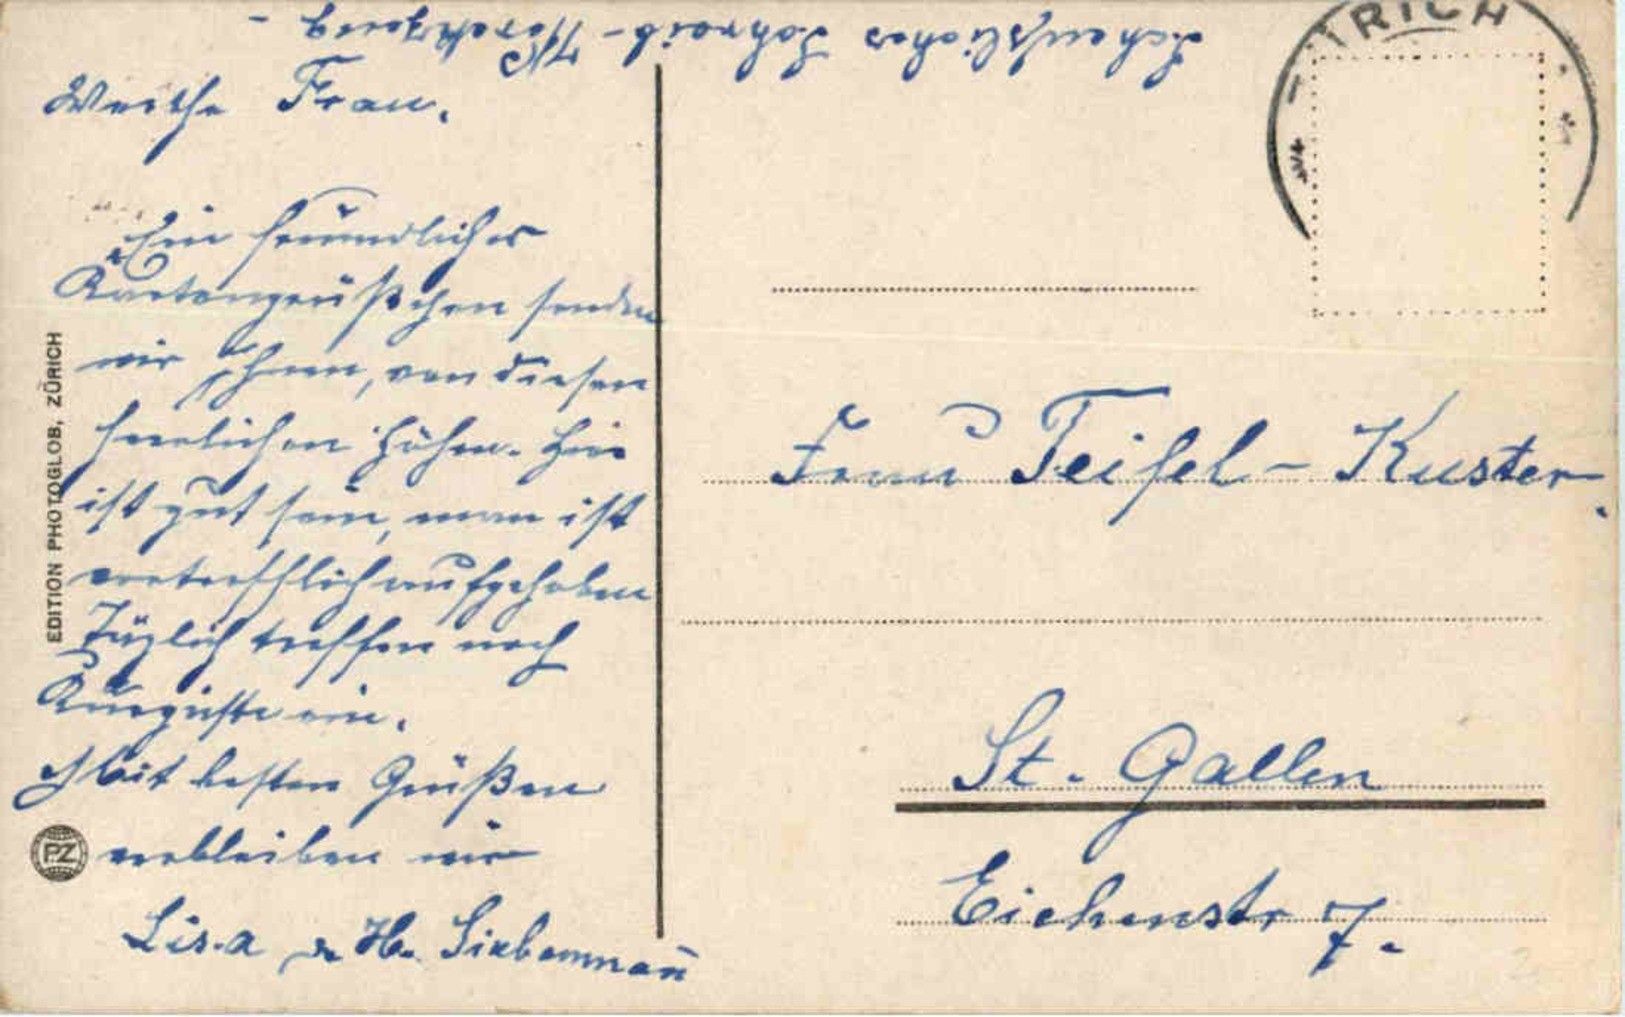 Scheußliches Schreib-
Werthe Frau.
Ein freundliches
Kartengrüßchen senden
wir Ihnen, von diesen
herrlichen Höhen. Hier
ist gut sein, man ist
vortrefflich aufgehoben
Täglich treffen noch
Kurgäste ein.
Mit besten Grüßen
verbleiben wir
Lisa & H. Siebenmann
EDITION PHOTOGLOB, ZÜRICH
PZ
Frau Teifel-Kuster.
St. Gallen
Eichenstr 7.